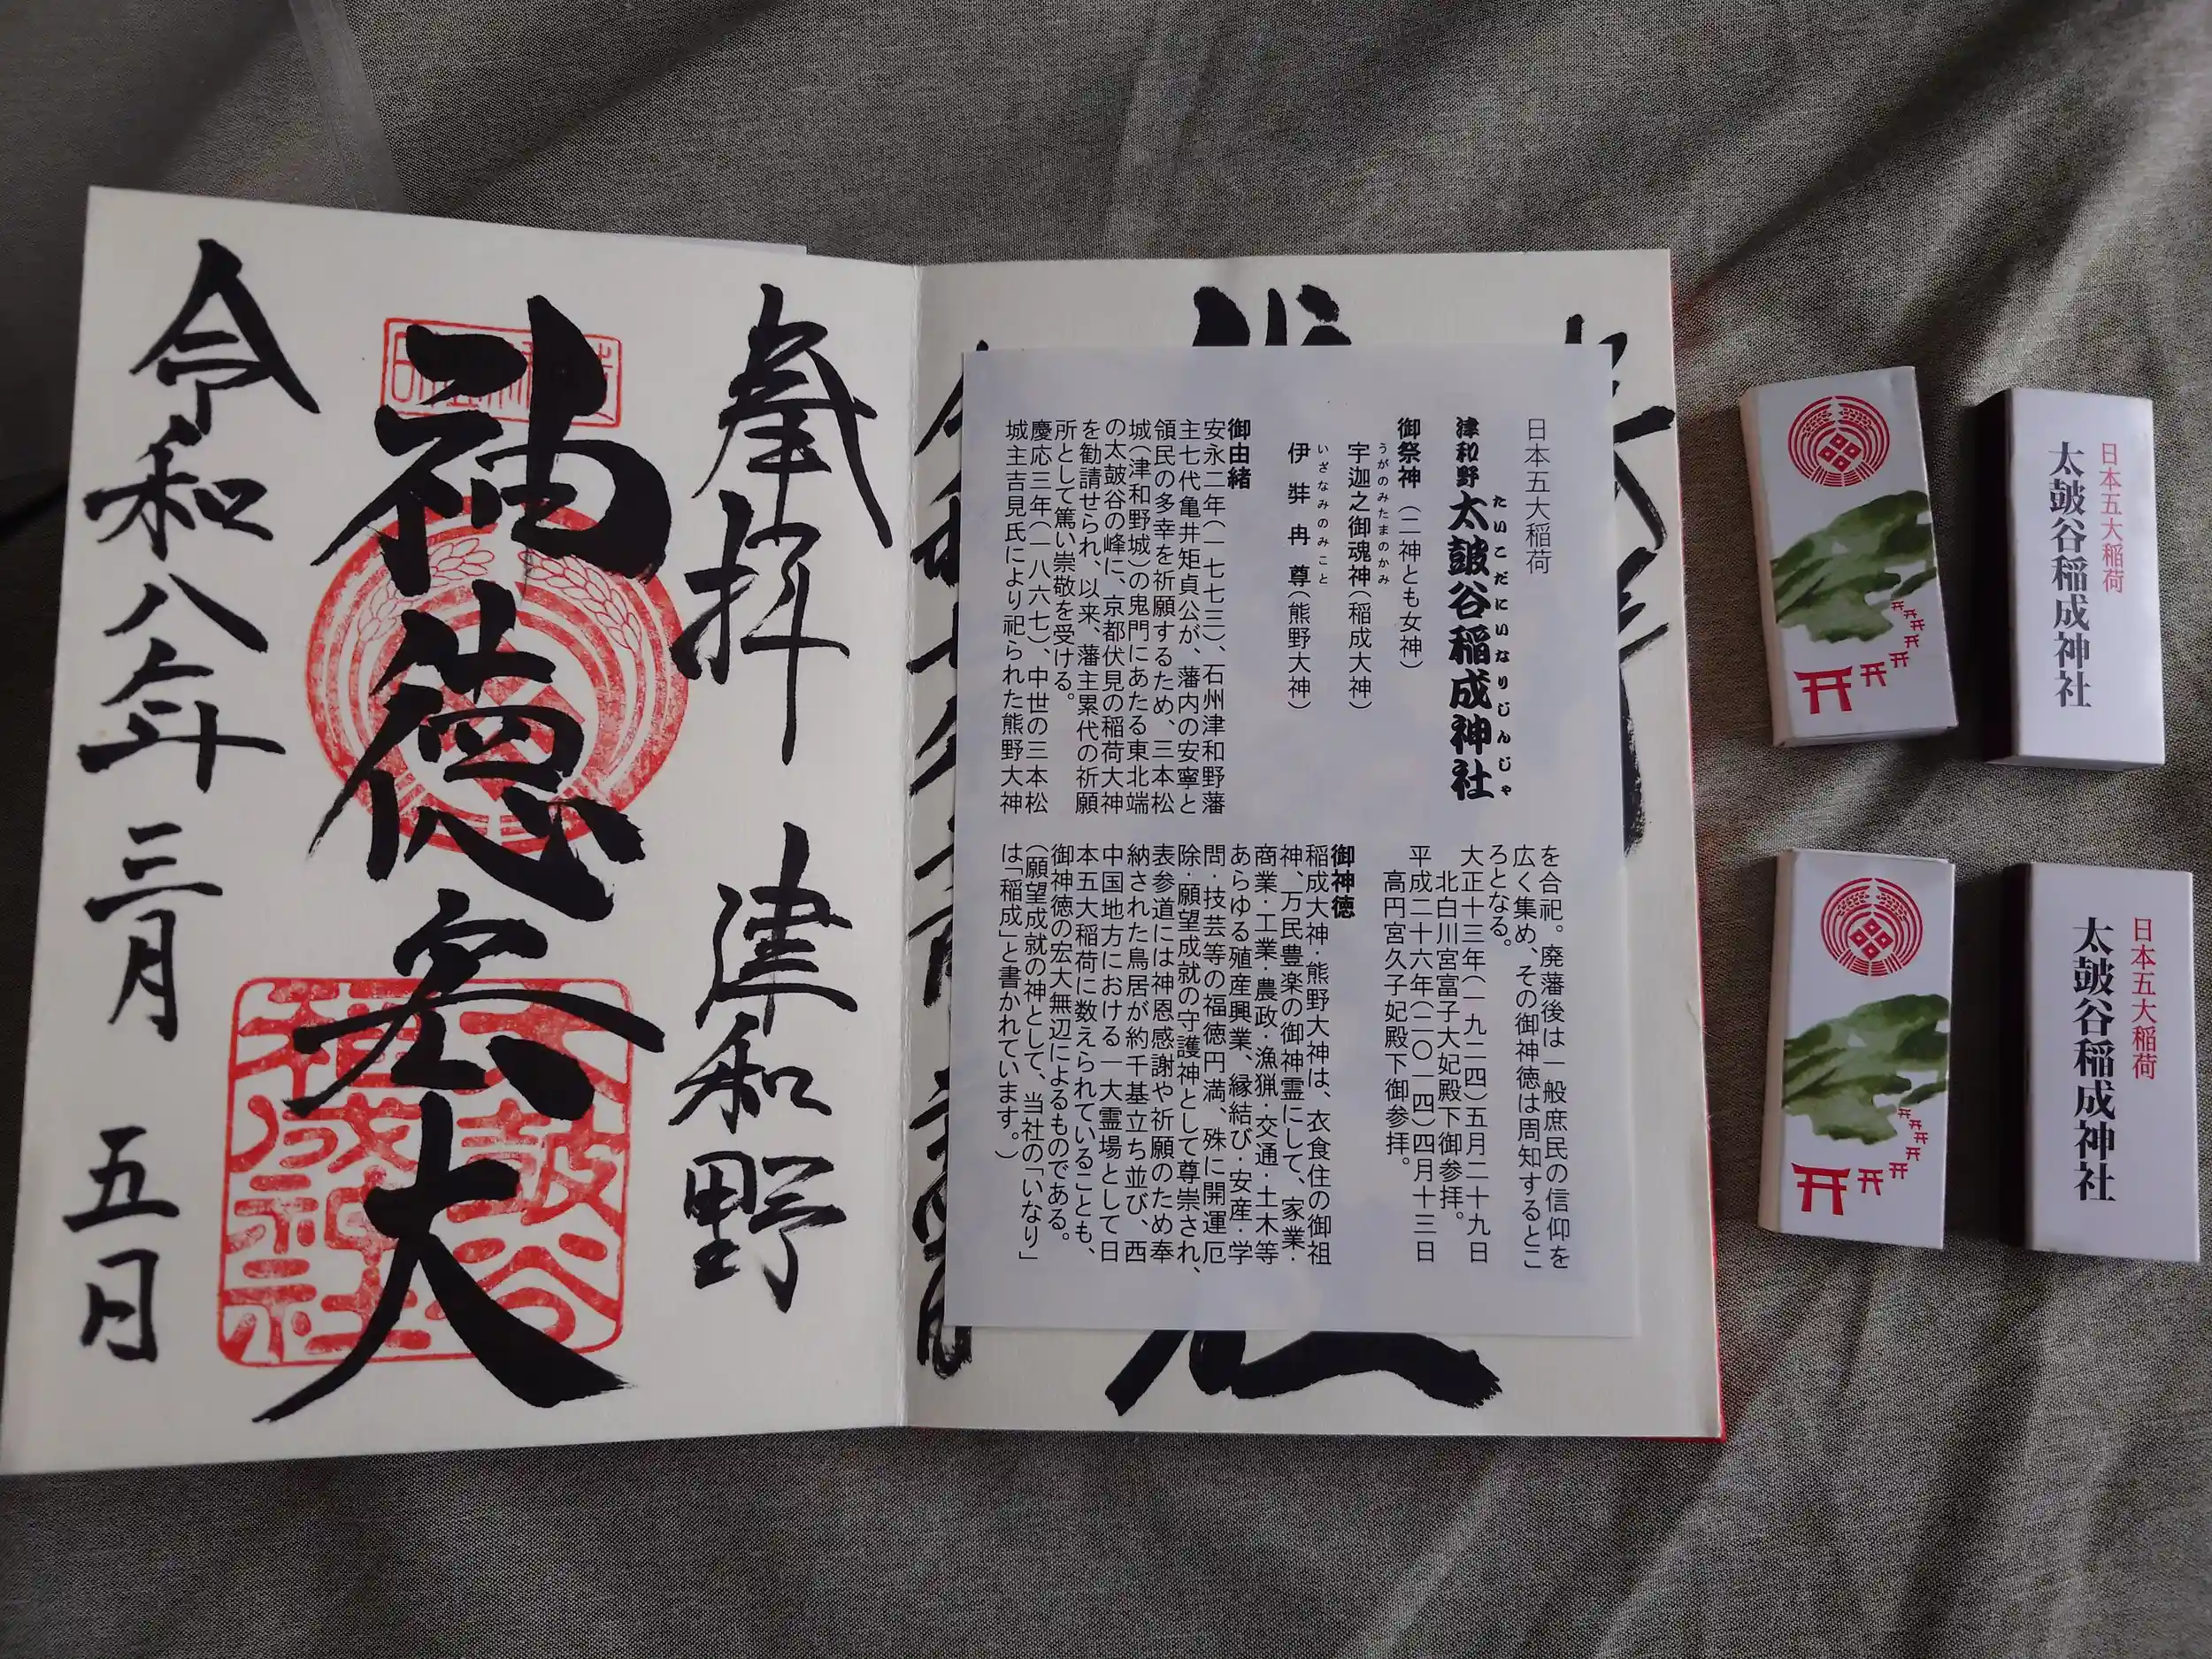 奉拝 津和野
神徳宏大
令和八年三月五日
太皷谷
稲成
神社
日本五大稲荷
津和野 太皷谷稲成神社
たいこだにいなりじんじゃ
御祭神（二神とも女神）
うがのみたまのかみ
宇迦之御魂神（稲成大神）
いざなみのみこと
伊弉冉尊（熊野大神）
御由緒
安永二年（一七七三）、石州津和野藩
主七代亀井矩貞公が、藩内の安寧と
領民の多幸を祈願するため、三本松
城（津和野城）の鬼門にあたる東北端
の太皷谷の峰に、京都伏見の稲荷大神
を勧請せられ、以来、藩主累代の祈願
所として篤い崇敬を受ける。
慶応三年（一八六七）、中世の三本松
城主吉見氏により祀られた熊野大神
を合祀。廃藩後は一般庶民の信仰を
広く集め、その御神徳は周知するとこ
ろとなる。
大正十三年（一九二四）五月二十九日
北白川宮富子大妃殿下御参拝。
平成二十六年（二〇一四）四月十三日
高円宮久子妃殿下御参拝。
御神徳
稲成大神・熊野大神は、衣食住の御祖
神、万民豊楽の御神霊にして、家業・
商業・工業・農政・漁猟・交通・土木等
あらゆる殖産興業、縁結び・安産・学
問・技芸等の福徳円満、殊に開運厄
除・願望成就の守護神として尊崇され、
表参道には神恩感謝や祈願のため奉
納された鳥居が約千基立ち並び、西
中国地方における一大霊場として日
本五大稲荷に数えられていることも、
御神徳の宏大無辺によるものである。
（願望成就の神として、当社の「いなり」
は「稲成」と書かれています。）
日本五大稲荷
太皷谷稲成神社
日本五大稲荷
太皷谷稲成神社